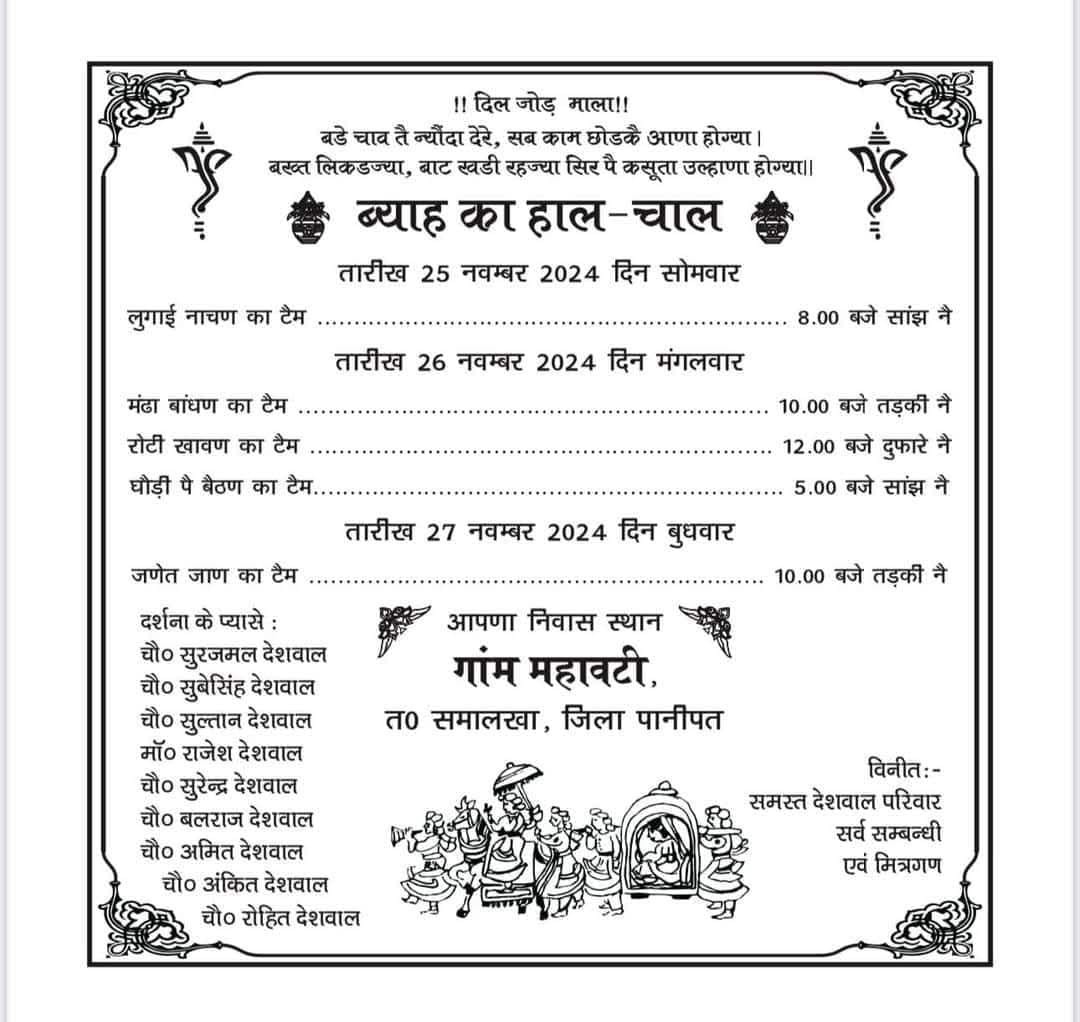 !! दिल जोड़ माला!!
बडे चाव तै न्यौंदा देरे, सब काम छोडकै आणा होग्या।
बख्त लिकडज्या, बाट खडी रहज्या सिर पै कसूता उल्हाणा होग्या॥
ब्याह का हाल-चाल
तारीख 25 नवम्बर 2024 दिन सोमवार
लुगाई नाचण का टैम ................................................................ 8.00 बजे सांझ नै
तारीख 26 नवम्बर 2024 दिन मंगलवार
मंढा बांधण का टैम ................................................................ 10.00 बजे तड़की नै
रोटी खावण का टैम ............................................................... 12.00 बजे दुफारे नै
घौड़ी पै बैठण का टैम................................................................ 5.00 बजे सांझ नै
तारीख 27 नवम्बर 2024 दिन बुधवार
जणेत जाण का टैम .............................................................. 10.00 बजे तड़की नै
दर्शना के प्यासे :
चौ0 सुरजमल देशवाल
चौ0 सुबेसिंह देशवाल
चौ0 सुल्तान देशवाल
मॉ0 राजेश देशवाल
चौ0 सुरेन्द्र देशवाल
चौ0 बलराज देशवाल
चौ0 अमित देशवाल
चौ0 अंकित देशवाल
चौ0 रोहित देशवाल
आपणा निवास स्थान
गांम महावटी,
त0 समालखा, जिला पानीपत
विनीत:-
समस्त देशवाल परिवार
सर्व सम्बन्धी
एवं मित्रगण